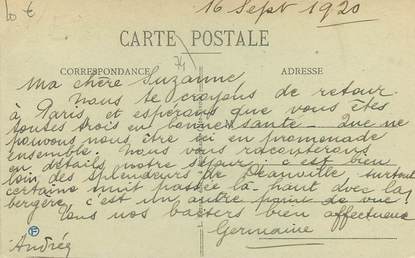 10 €
16 Sept 1920
CARTE POSTALE
74
CORRESPONDANCE
ADRESSE
Ma chère Suzanne
Nous te croyons de retour
à Paris et espérons que vous êtes
toutes trois en bonne santé. Que ne
pouvons nous être ici en promenade
ensemble. Nous vous raconterons
en détails notre séjour; c'est bien
loin des splendeurs de Deauville, surtout
certaine nuit passée là-haut avec la
bergère, c'est un autre point de vue!
Tous nos baisers bien affectueux
Germaine
Andrée